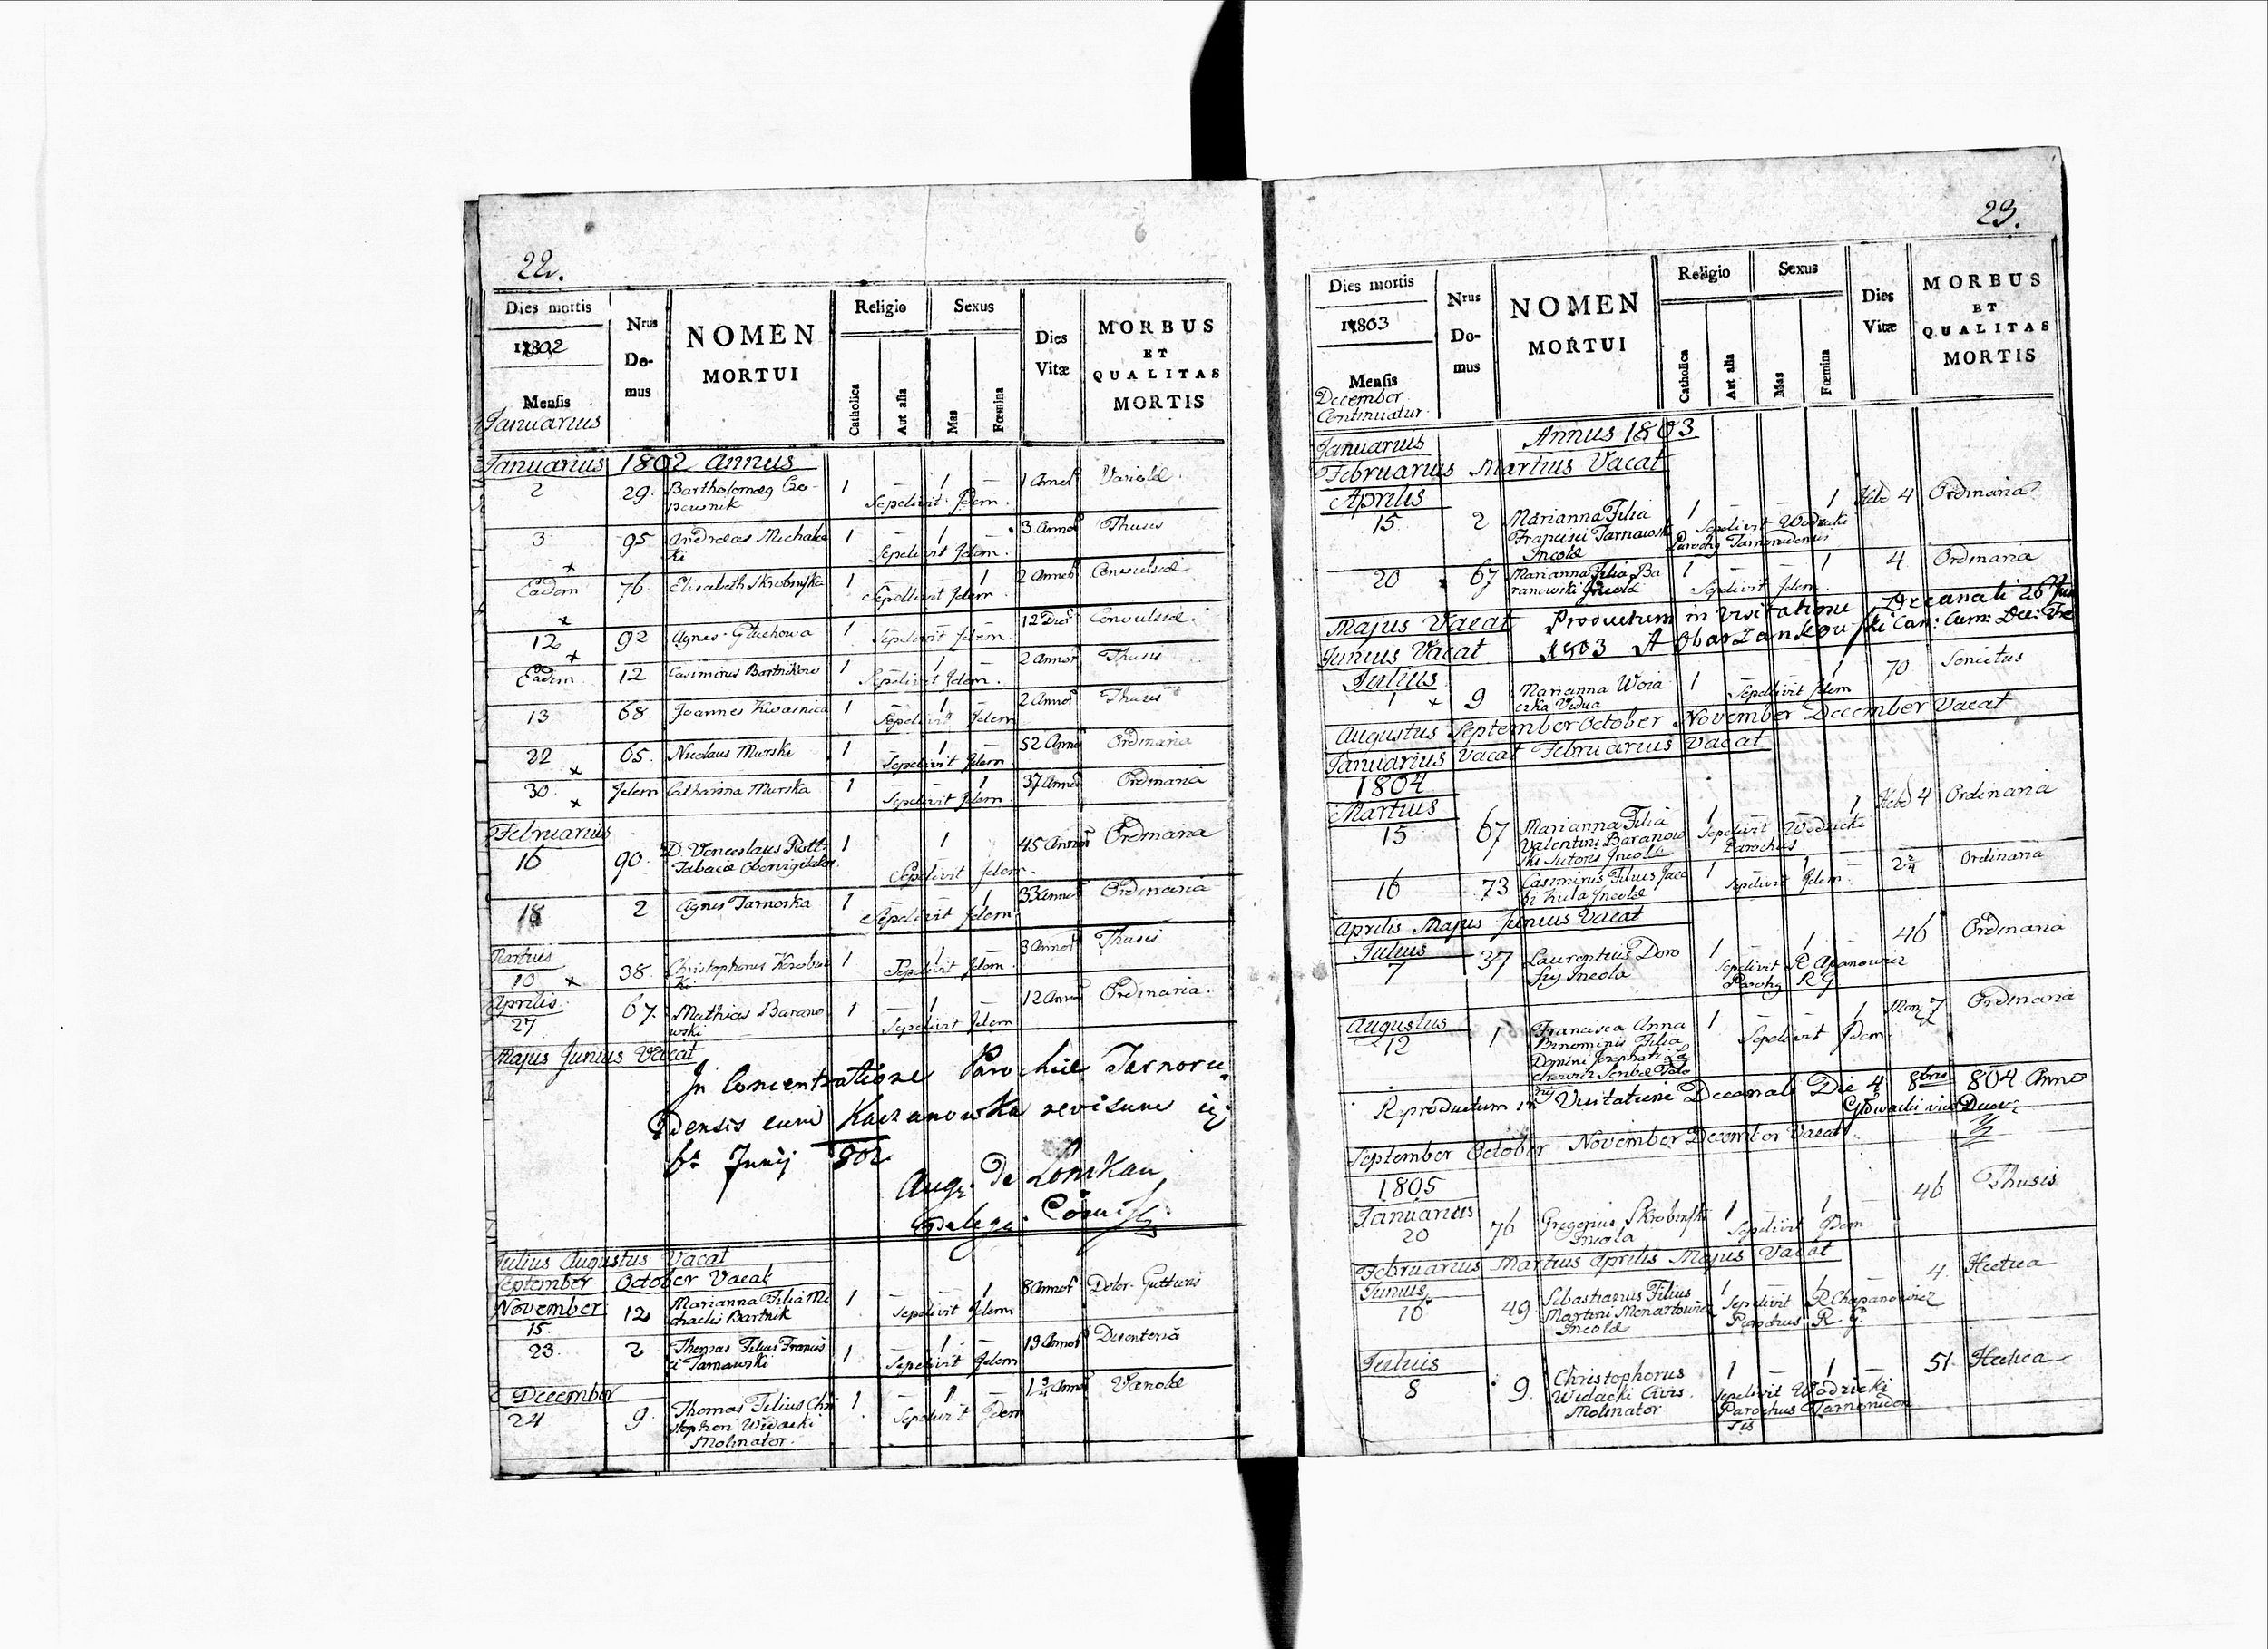 22.
Dies mortis
1802
Mensis
Januarius
Nrus
Do-
mus
NOMEN
MORTUI
Religio
Catholica
Aut alia
Sexus
Mas
Fœmina
Dies
Vitæ
MORBUS
ET
QUALITAS
MORTIS
Januarius 1802 Annus
2 29. Bartholomæg 1 – 1 – 1 Annor Variolæ.
Sepelivit Idem.
3 95 Andreas Michals 1 – 1 3 Annor Thusis
ki Sepelivit Idem.
Eadem 76 Elisabeth Skrobynska 1 – – 1 2 Annor Convulsiæ
Sepellivit Idem.
12 92 Agnes Gluchowa 1 – – 1 12 Convulsiæ.
Sepelivit Idem.
Eadem 12 Casimirus 1 – 1 – 2 Annor Thusis
Sepelivit Idem.
13 68 Joannes Kwasnica 1 – 1 – 2 Annor Thusis
Sepelivit Idem
22 65. Nicolaus Murski 1 – 1 – 52 Annor Ordinaria
Sepelivit Idem
30 Idem Catharina Murska 1 – – 1 37 Annor Ordinaria
Sepelivit Idem.
Februarius
16 90. D. Venceslaus 1 1 45 Annor Ordinaria
Tabacæ
Sepelivit Idem.
18 2 Agnes Tarnoska 1 – – 1 33 Annor Ordinaria
Sepelivit Idem
Martius
10 38. Christophorus 1 – 1 – 3 Annor Thusis
ki Sepelivit Idem
Aprilis
27 67. Mathias Barano 1 – 1 – 12 Annor Ordinaria.
wski Sepelivit Idem
Majus Junius Vacat
In Concentratione Parochiæ Tarnoru
densis cum Kaczanowka revisum
6ta Junij 802
Julius Augustus Vacat
September October Vacat
November
15. 12 Marianna Filia Mi 1 – – 1 8 Annor Dolor Gutturis
chaelis Bartnik Sepelivit Idem
23. 2 Thomas Filius Francis 1 – 1 – 19 Annor Disenteria
ci Tarnawski Sepelivit Idem
December
24 9 Thomas Filius Chri 1 – 1 – Variolæ
stophori Widacki Sepelivit Idem
Molinator.
23.
Dies mortis
1803
Mensis
December
Continuatur.
Nrus
Do-
mus
NOMEN
MORTUI
Religio
Catholica
Aut alia
Sexus
Mas
Fœmina
Dies
Vitæ
MORBUS
ET
QUALITAS
MORTIS
Januarius Annus 1803
Februarius Martius Vacat
Aprilis
15. 2 Marianna Filia 1 – – 1 Heb 4 Ordinaria
Francisci Tarnawski Sepelivit Wodzicki
Incolæ Parochg Tarnorudensis
20 67 Marianna Filia Ba 1 – – 1 4 Ordinaria
ranowski Incolæ Sepelivit Idem
Majus Vacat Productum in Visitatione Decanali 26 Jun
Junius Vacat 1803 A Obarzankowski Can:
Julius
1 9 Marianna Woia 1 1 70 Senectus
czka Vidua Sepellivit Idem
Augustus September October November December Vacat
Januarius Vacat Februarius Vacat
1804
Martius
15 67 Marianna Filia 1 1 Heb 4 Ordinaria
Valentini Baranow Sepelivit Wodzicki
ski Sutoris Incolæ Parochus
16 73 Casimirus Filius Jaco 1 1 – Ordinaria
bi Kula Incolæ Sepelivit Idem.
Aprilis Majus Junius Vacat
Julius
7 37 Laurentius Doro 1 – 1 46 Ordinaria
Incola Sepelivit R
Parohg R G
Augustus
12 1 Francisca Anna 1 1 Mens 7 Ordinaria
Binominis Filia Sepelivit Idem
Domini
Reproductum in Visitatione Decanali Die 4 8bris 804 Anno
September October November December Vacat
1805
Januarius
20 76 Gregorius Skrobinski 1 1 46 Thusis
Incola Sepelivit Idem
Februarius Martius Aprilis Majus Vacat
Junius
16 49 Sebastianus Filius 1 1 4. Hectica
Martini Sepelivit R
Incolæ Parochus R G
Julius
8 9. Christophorus 1 – 1 – 51. Hectica
Widacki Civis. Sepelivit Wodzicki
Molinator Parochus Tarnoruden
sis